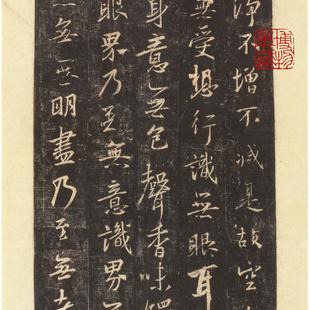 淨不增不減是故空
無受想行識無眼耳
身意無色聲香味觸
眼界乃至無意識界
無無明盡乃至無老